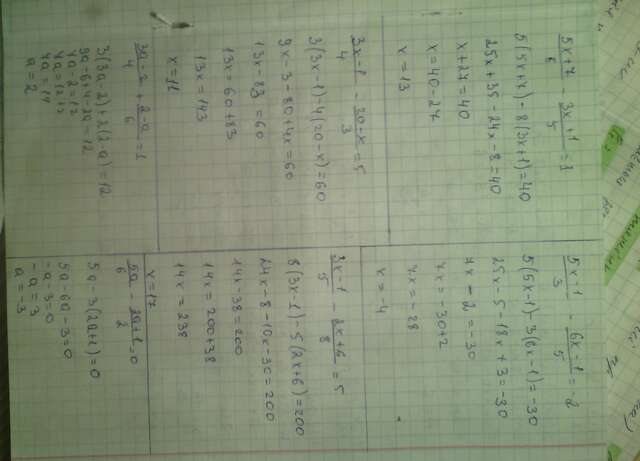 (5x+7)/8 - (3x+1)/5 = 1
5(5x+7)-8(3x+1)=40
25x+35-24x-8=40
x+27=40
x=40-27
x=13
(3x-1)/4 - (20-x)/3 = 5
3(3x-1)-4(20-x)=60
9x-3-80+4x=60
13x-83=60
13x=60+83
13x=143
x=11
(3a-2)/4 + (2-a)/6 = 1
3(3a-2)+2(2-a)=12
9a-6+4-2a=12
7a-2=12
7a=12+2
7a=14
a=2
(5x-1)/3 - (6x-1)/5 = 2
5(5x-1)-3(6x-1)=-30
25x-5-18x+3=-30
7x-2=-30
7x=-30+2
7x=-28
x=-4
(3x-1)/5 - (2x+6)/8 = 5
8(3x-1)-5(2x+6)=200
24x-8-10x-30=200
14x-38=200
14x=200+38
14x=238
x=17
5a/6 - (2a+1)/2 = 0
5a-3(2a+1)=0
5a-6a-3=0
-a-3=0
-a=3
a=-3